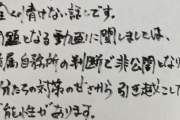 全く情けない話です。
問題となる動画に関しましては、
所属事務所の判断で非公開となり
分たちの対策のせきから引き起こした
能性があります。